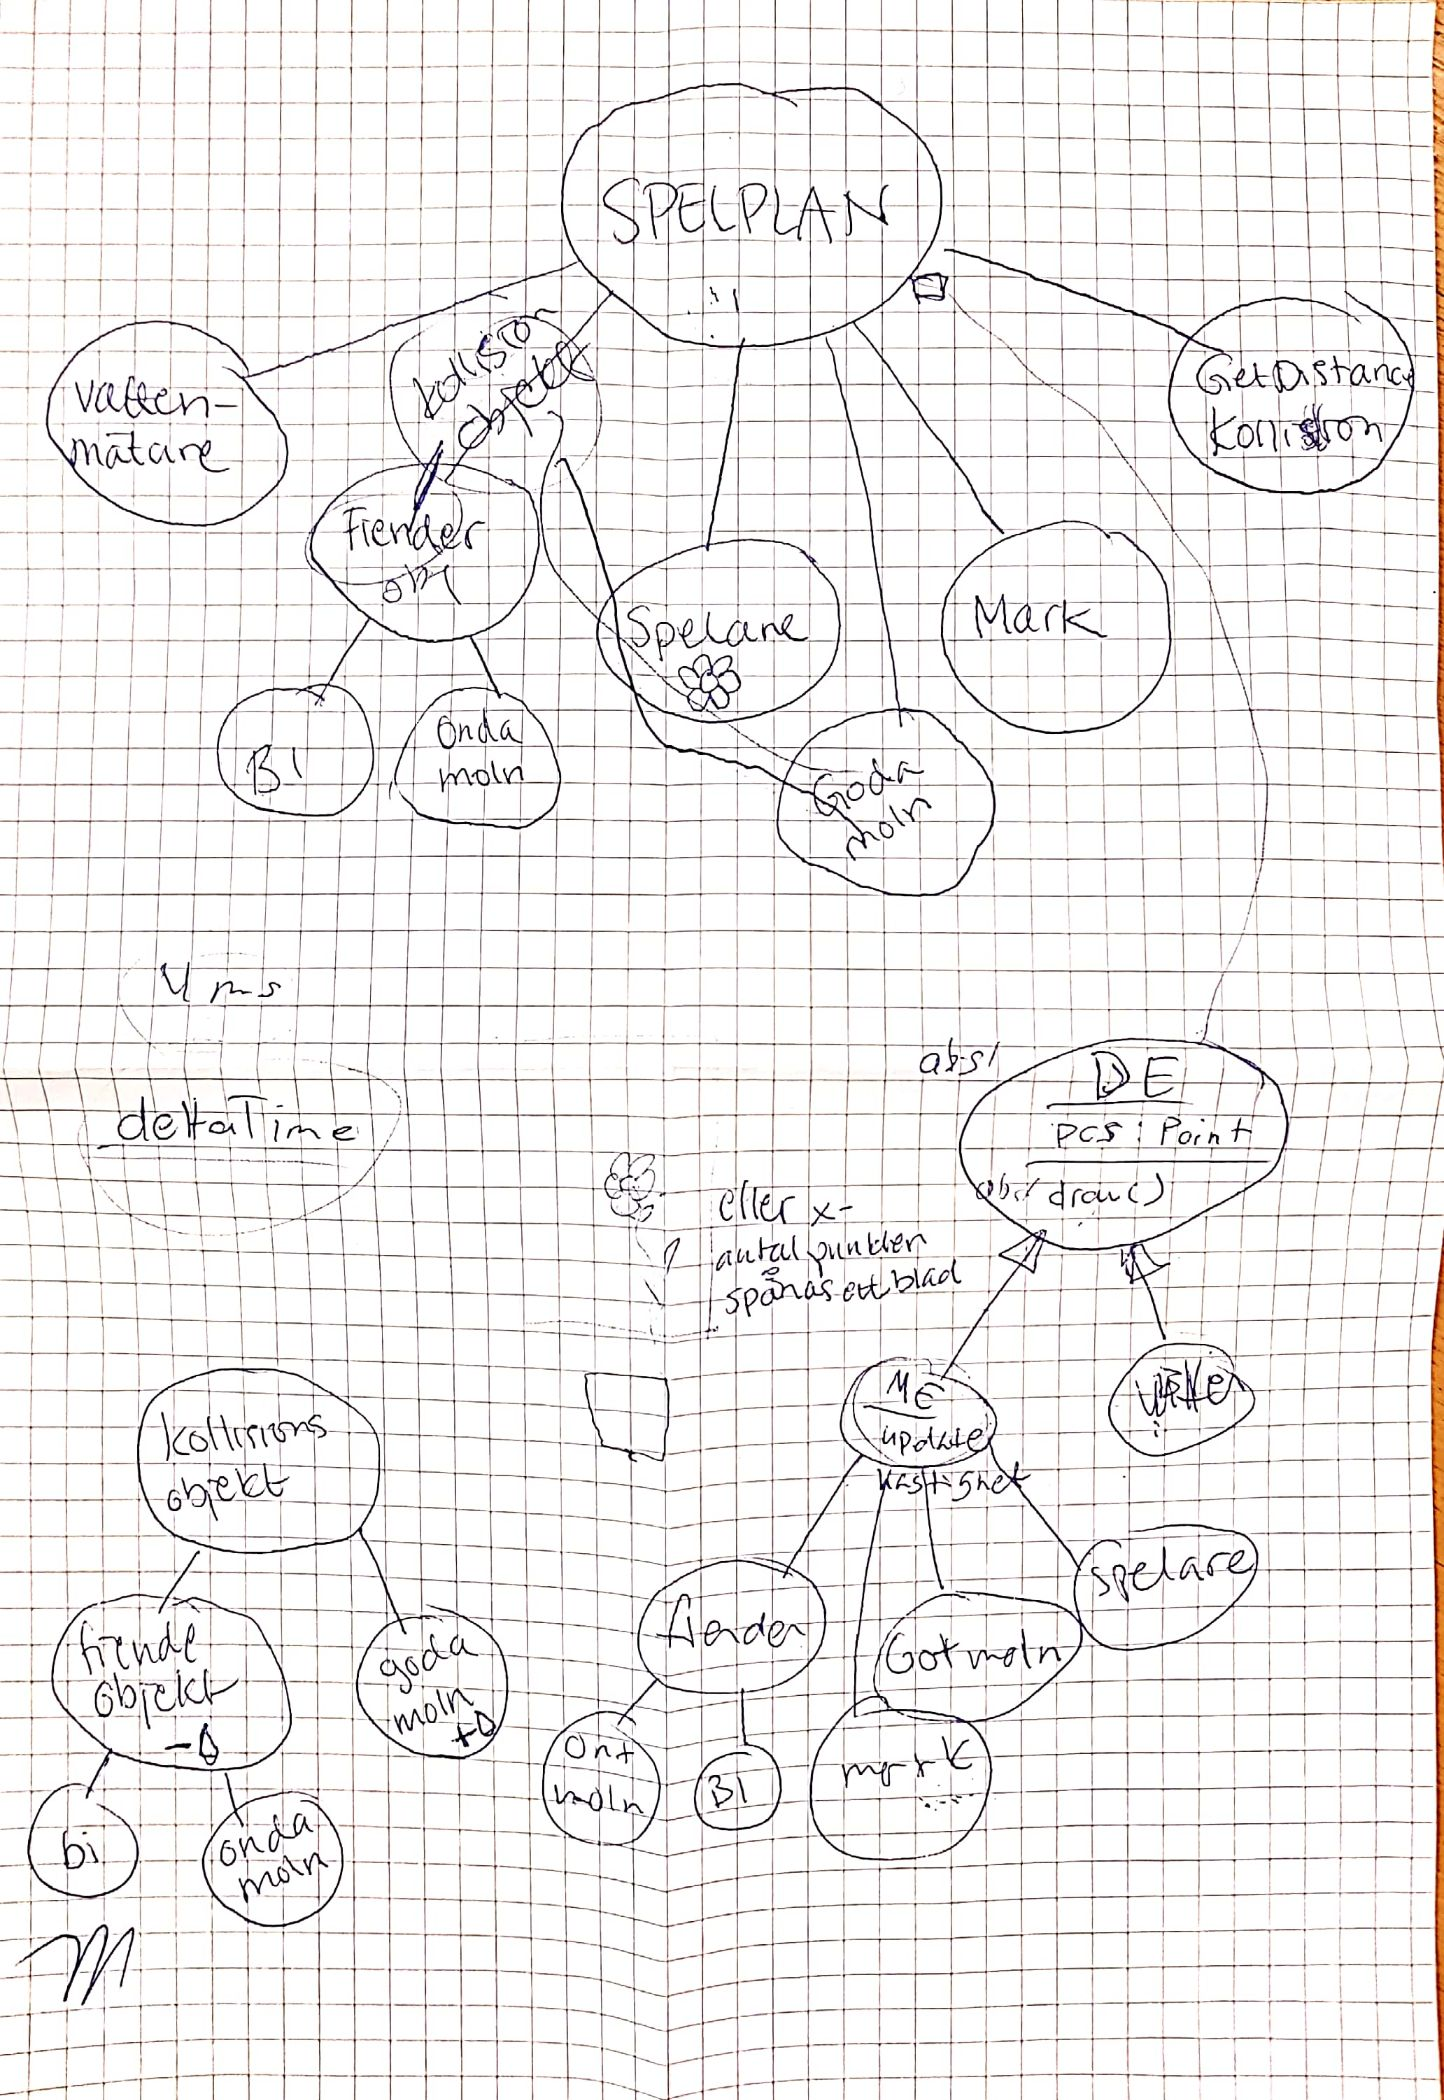 SPELPLAN
Vatten-
mätare
kollision
objekt
GetDistance
Kollision
Fiender
obj
Spelare
Mark
BI
Onda
moln
Goda
moln
4 ms
deltaTime
abs/
DE
pos: Point
abs/ draw()
eller x-
antal punkter
spånas ett blad
ME
update
hastighet
kollisions
objekt
fiende
objekt
-
goda
moln
+
bi
onda
moln
fiender
Gotmoln
spelare
Ont
moln
BI
mark
M